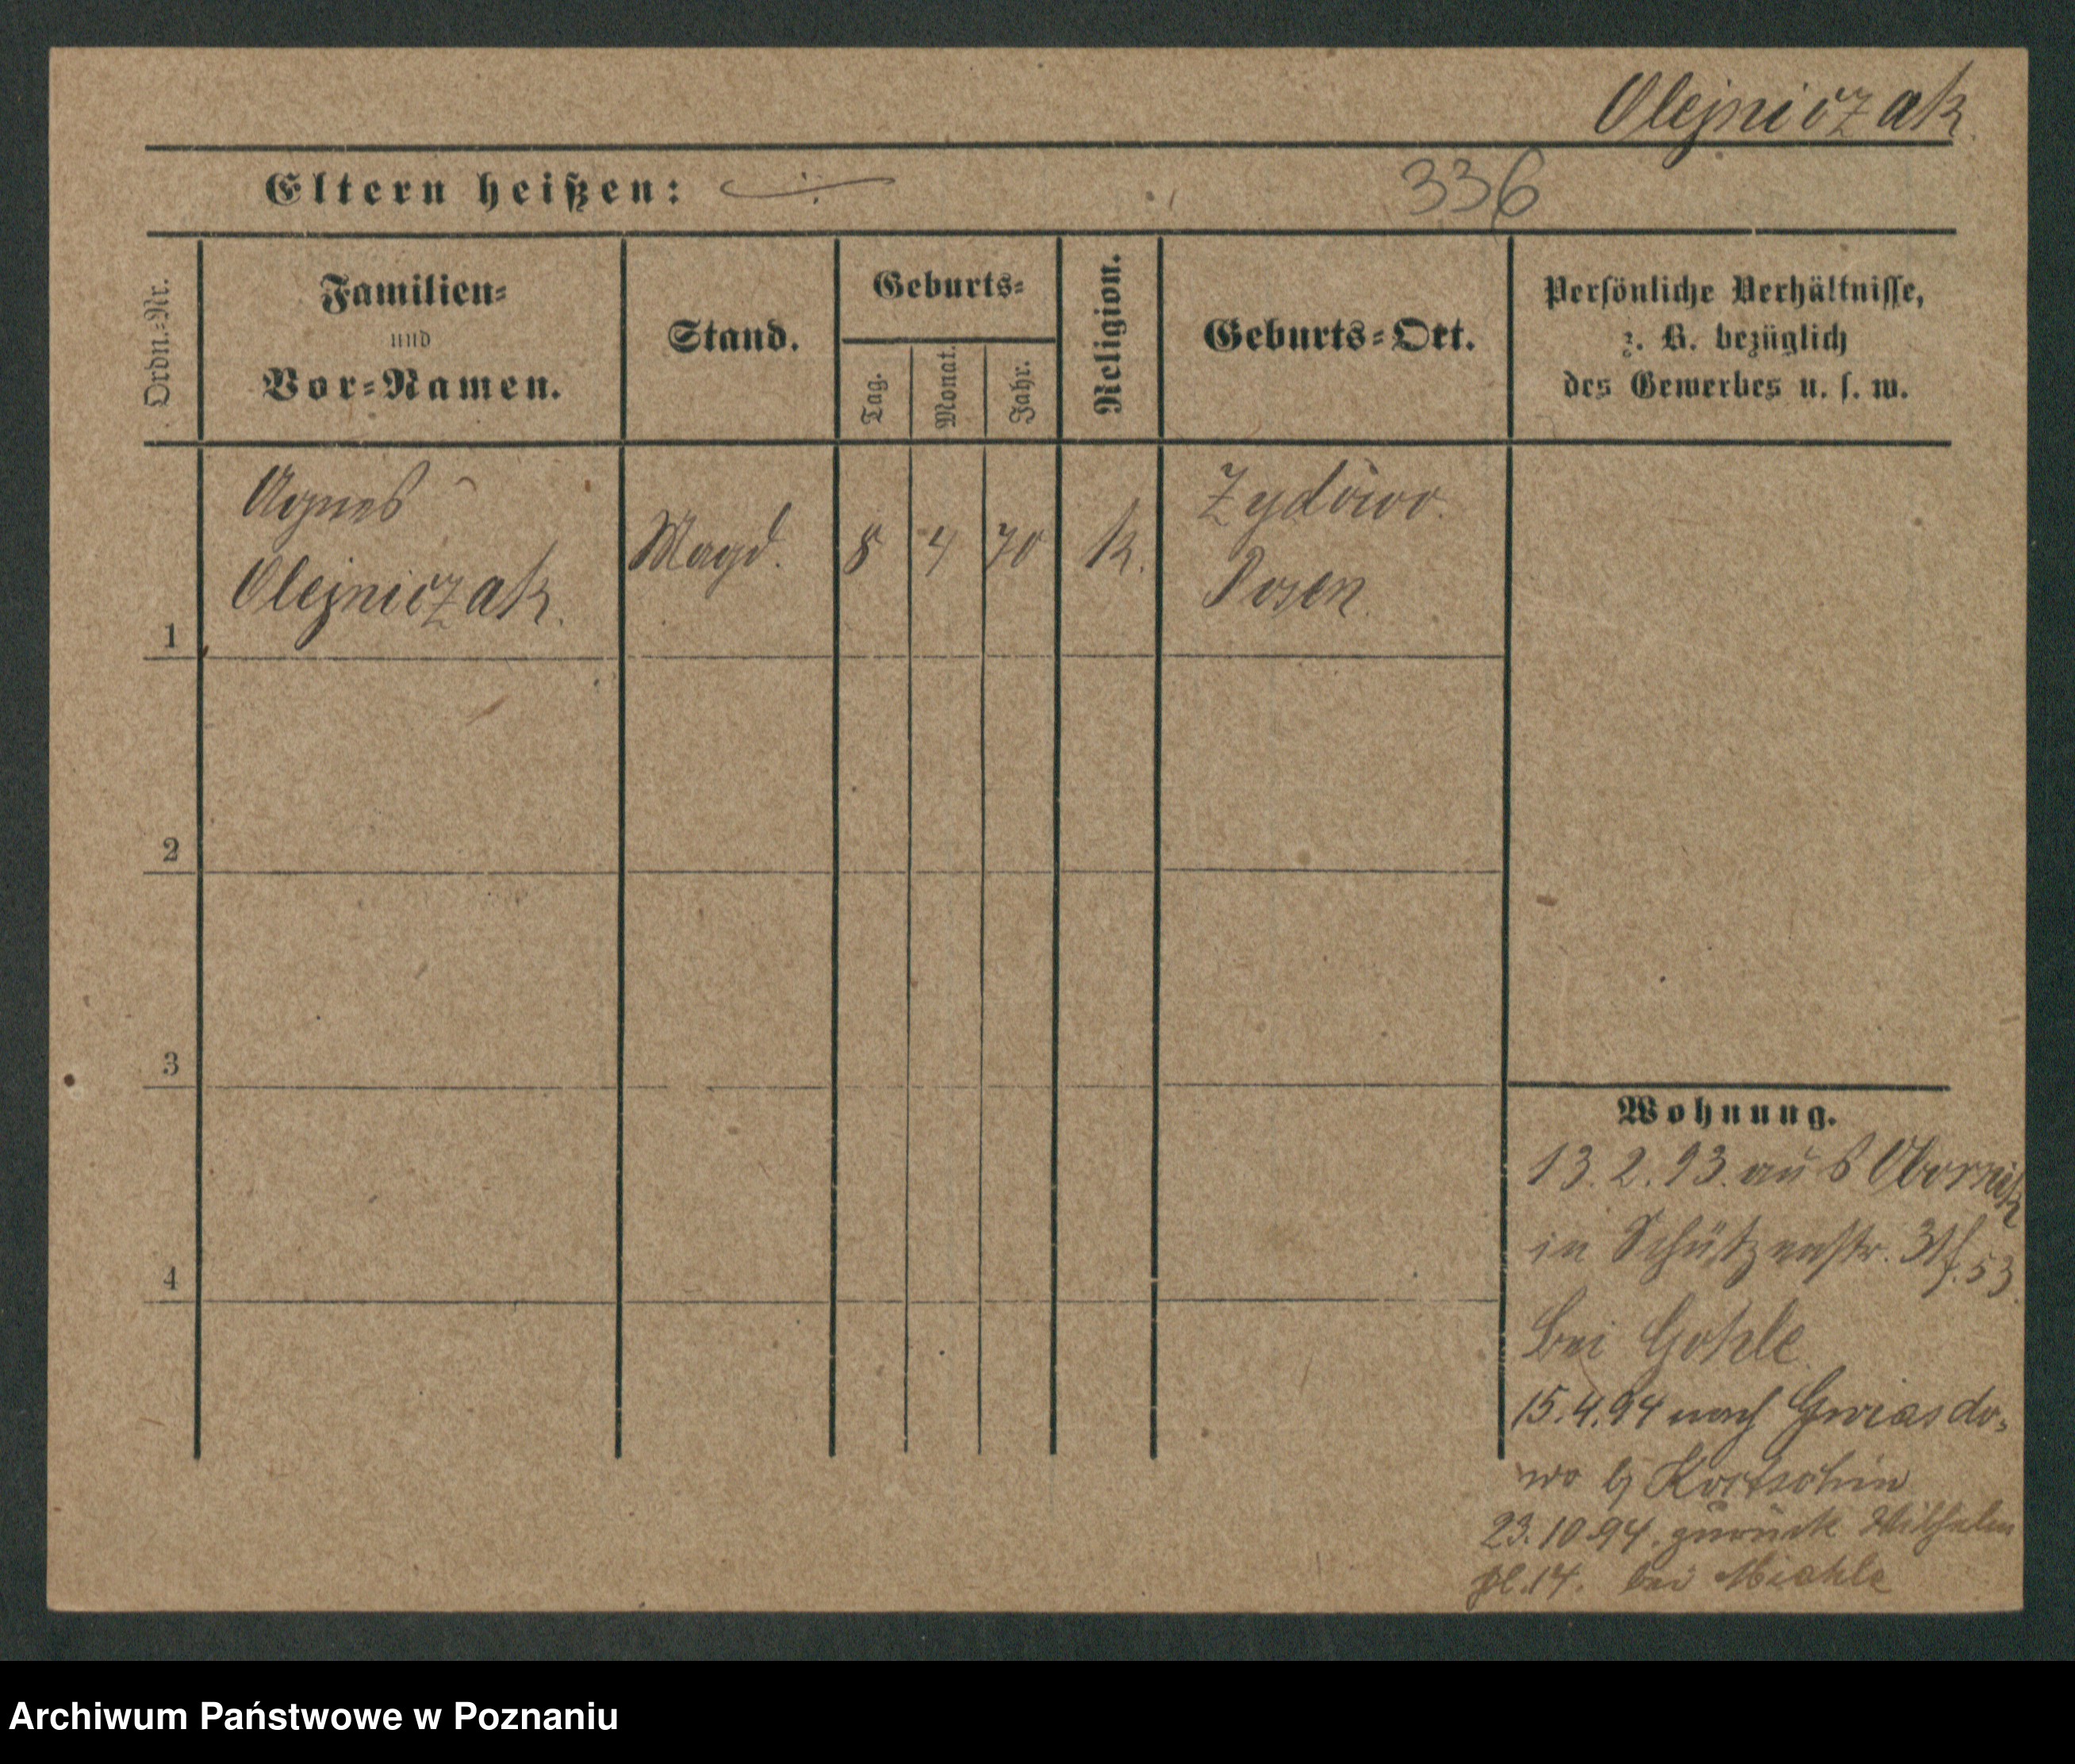 Olejniczak.
Eltern heißen: ⁒
336
Ordn.-Nr.
Familien-
und
Vor-Namen.
Stand.
Geburts-
Tag.
Monat.
Jahr.
Religion.
Geburts-Ort.
Persönliche Verhältnisse,
z. B. bezüglich
des Gewerbes u. s. w.
1
Agnes
Olejniczak.
Magd.
8
4
70
k.
Zydowo.
Posen.
2
3
4
Wohnung.
13.2.93. aus Obornik
in Schützenstr. 53.
bei Gohle
15.4.94 nach Gwiasdo-
wo b/ Kostschin
23.10.94. zurück Wilhelm
pl. 14. bei
Archiwum Państwowe w Poznaniu